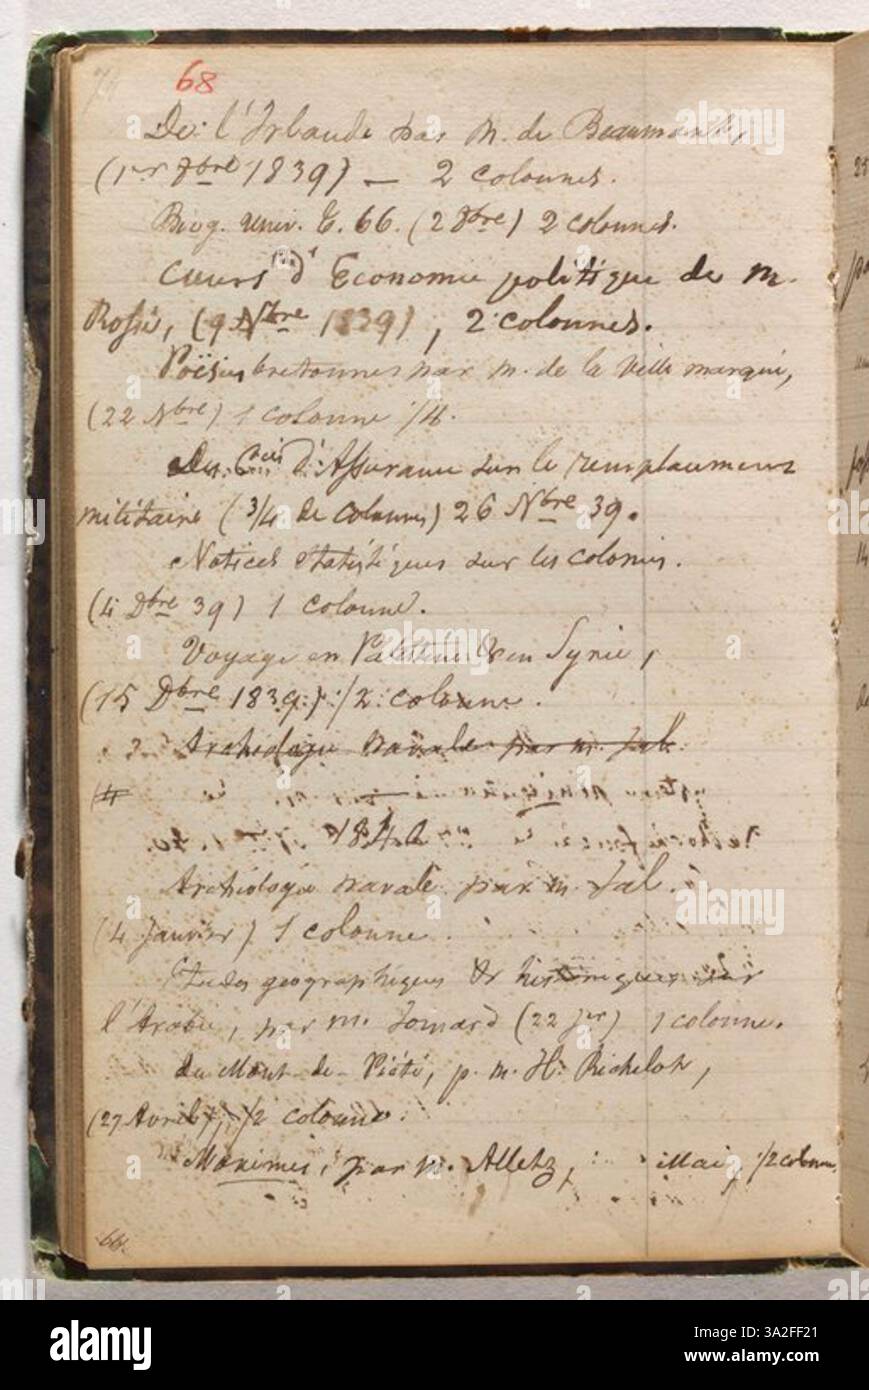 74
68
De l'Irlande par M. de Beaumont,
(1er 7bre 1839) — 2 colonnes.
Biog. univ. t. 66. (2 8bre) 2 colonnes.
Cours d'Economie politique de M.
Rossi, (9 Nbre 1839), 2 colonnes.
Poësies bretonnes par M. de la Ville marqué,
(22 Nbre) 1 colonne 1/4.
Des Cnies d'Assurance sur le remplacement
militaire (3/4 de colonnes) 26 Nbre 39.
Notices statistiques sur les colonies.
(4 Dbre 39) 1 colonne.
Voyage en Palestine & en Syrie,
(15 Dbre 1839) 1/2 colonne.
Archéologie navale par M. Jal.
(4
1840
Archéologie navale par M. Jal.
(4 Janvier) 1 colonne.
Etudes géographiques & historiques sur
l'Arabie, par M. Jomard (22 Jer) 1 colonne.
du Mont-de-Piété, p. M. H. Richelot,
(27 Avril), 1/2 colonne.
Maximes, par M. Alletz, Mai, 1/2 colonne
66.
alamy
Image ID: 3A2FF21
www.alamy.com